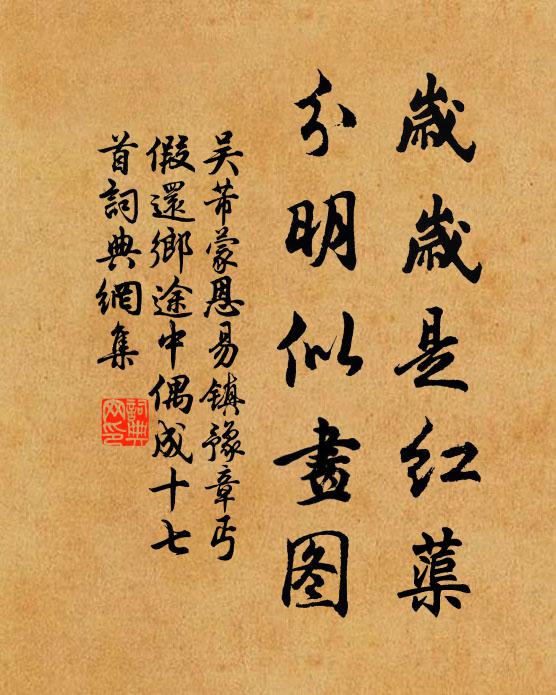 歲歲是红蕖
分明似畫图
吴芾蒙恩易镇豫章丐
假還鄉途中偶成十七
首詞典網集
詞典
网印